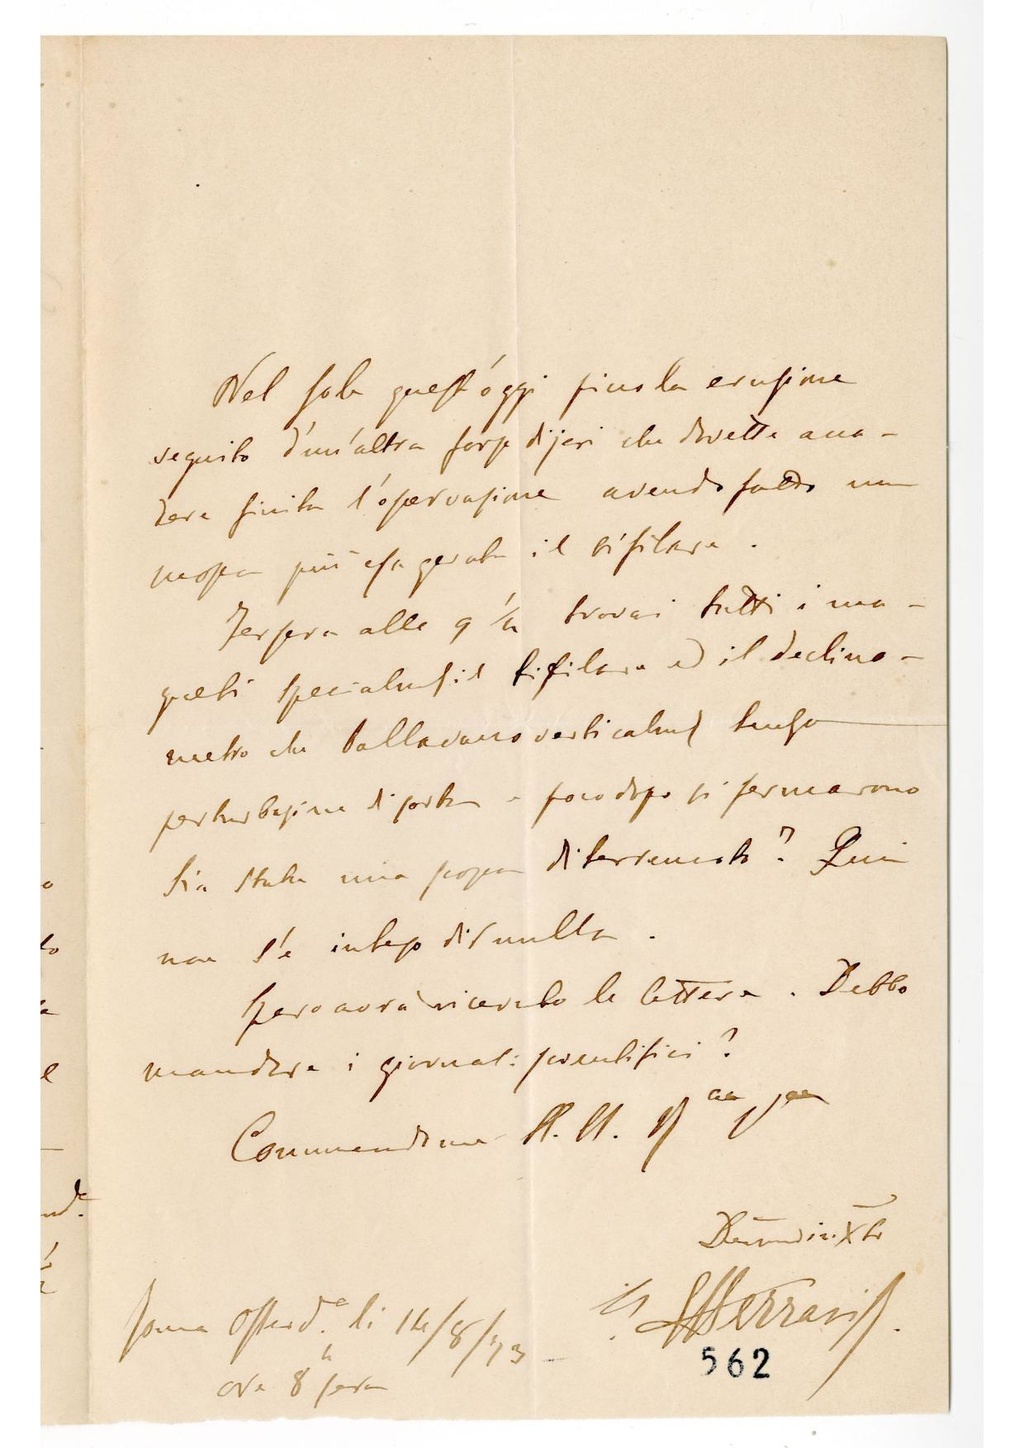 Nel sole quest'oggi piccola eruzione
seguito d'un'altra forse di jeri che dovette acca-
dere finita l'osservazione avendo fatto una
mossa più esagerata il bifilare.
Jersera alle 9 ½ trovai tutti i ma-
gneti specialm. il bifilare ed il declino-
metro che ballavano verticalm. senza
perturbazione di sorta – poco dopo si fermarono
Sia stata una scossa di terremoto? Qui
non s'è inteso di nulla.
Spero avrà ricevuto le lettere. Debbo
mandare i giornali scientifici?
Commendome
in Xto
Roma Osserv. li 14/8/73
ore 8 sera
G. S. Ferrari
562